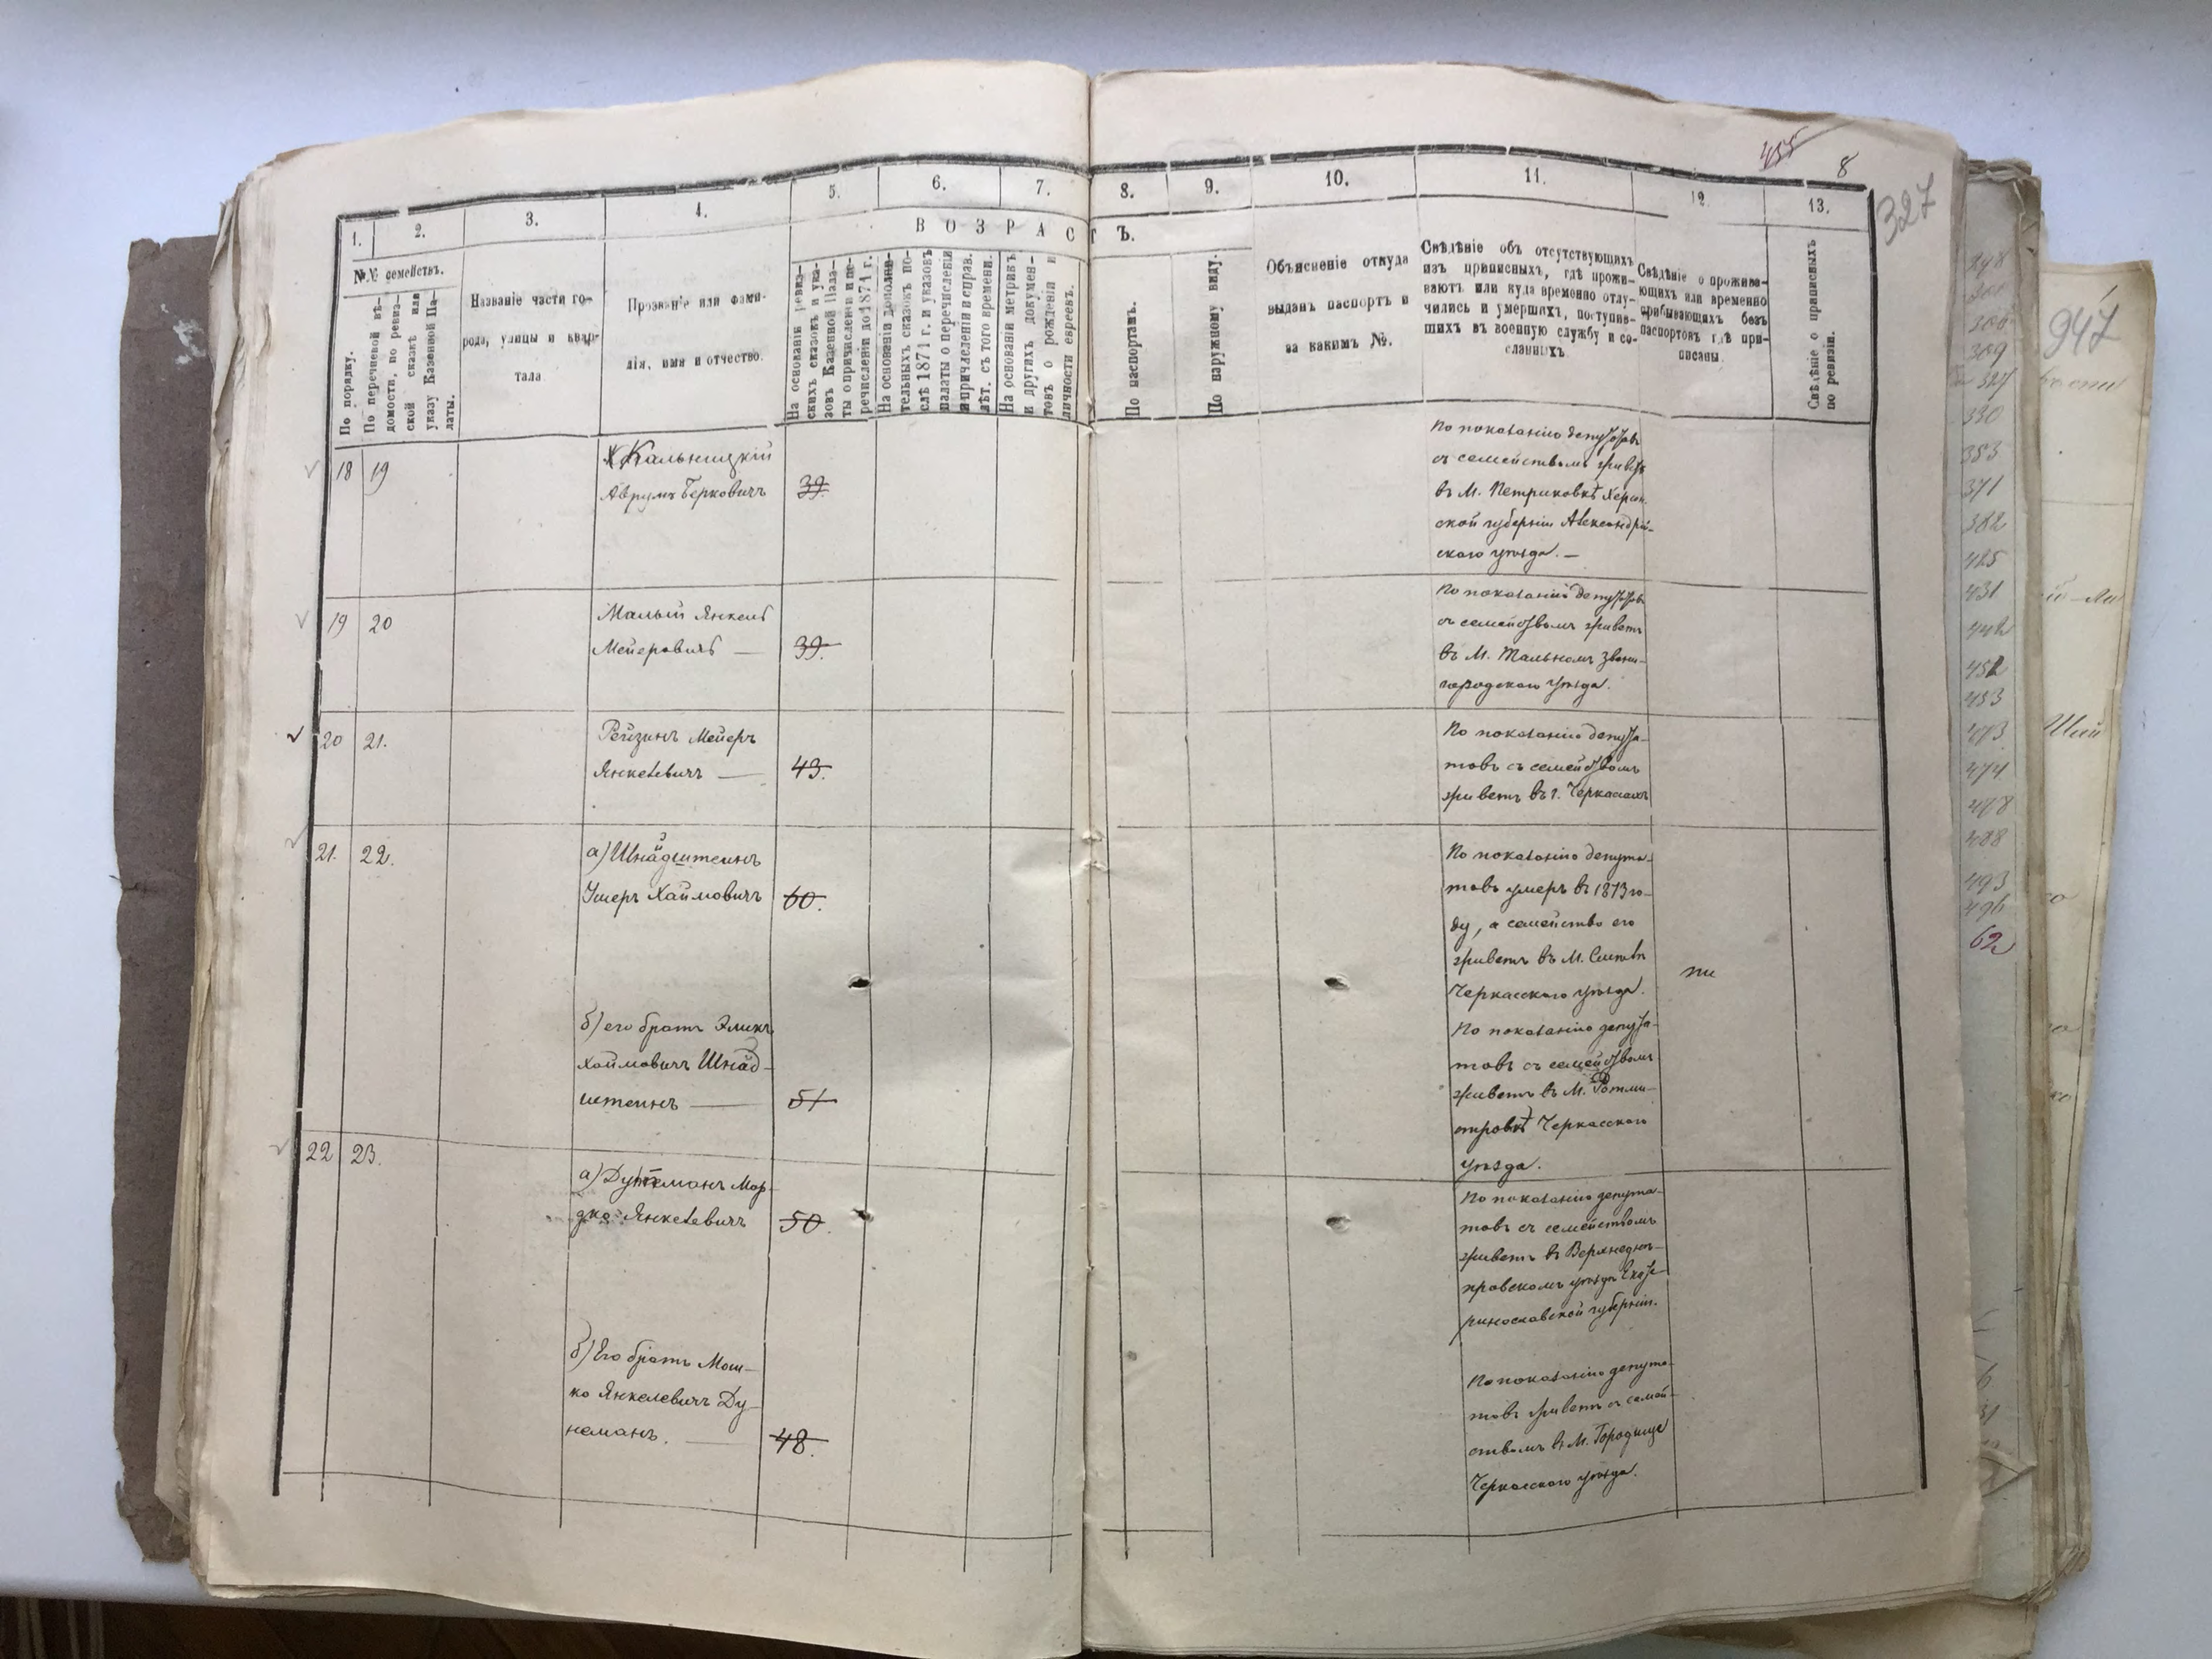 455
8
327
1.
2.
3.
4.
5.
6.
7.
8.
9.
10.
11.
12.
13.
№№ семействъ.
ВОЗРАСТЪ.
По порядку.
По перечневой вѣ-
домости, по ревиз-
ской сказкѣ или
указу Казенной Па-
латы.
Названіе части го-
рода, улицы и квар-
тала
Прозваніе или фами-
лія, имя и отчество.
На основаніи ревиз-
скихъ сказокъ и ука-
зовъ Казенной Пала-
ты о причисленіи и пе-
речисленіи до 1871 г.
На основаніи дополни-
тельныхъ сказокъ по-
слѣ 1871 г. и указовъ
палаты о перечисленіи
и причисленіи и справ.
лѣт. съ того времени.
На основаніи метрикъ
и другихъ докумен-
товъ о рожденіи и
личности евреевъ.
По паспортамъ.
По наружному виду.
Объясненіе откуда
выданъ паспортъ и
за какимъ №.
Свѣдѣніе объ отсутствующихъ
изъ приписныхъ, гдѣ прожи-
ваютъ или куда временно отлу-
чились и умершихъ, поступив-
шихъ въ военную службу и со-
сланныхъ.
Свѣдѣніе о прожива-
ющихъ или временно
прибывающихъ безъ
паспортовъ гдѣ при-
писаны.
Свѣдѣніе о приписныхъ
по ревизіи.
18 19
Кальницкій
Аврумъ Берковичъ 39.
По показанію депутатовъ
съ семействомъ живетъ
въ М. Петриковкѣ Херсон-
ской губерніи Александрій-
скаго уѣзда. —
19 20
Малый Янкель
Мейеровичъ — 39.
По показанію депутатовъ
съ семействомъ живетъ
въ М. Тальномъ Звени-
городскаго уѣзда.
20 21.
Рейзинъ Мейеръ
Янкелевичъ — 43.
По показанію депута-
товъ съ семействомъ
живетъ въ г. Черкасахъ
21. 22.
а) Шнайдштеинъ
Ушеръ Хаймовичъ 60.
По показанію депута-
товъ умеръ въ 1873 го-
ду, а семейство его
живетъ въ М. Смѣлѣ
Черкасскаго уѣзда.
б) его братъ
Хаймовичъ Шнайд-
штеинъ — 51
По показанію депута-
товъ съ семействомъ
живетъ въ М. Ротми-
стровкѣ Черкасскаго
уѣзда.
22 23.
а) Дунеманъ Мор-
дко Янкелевичъ 50.
По показанію депута-
товъ съ семействомъ
живетъ въ Верхнеднѣ-
провскомъ уѣздѣ Екате-
ринославской губерніи.
б) Его братъ Мош-
ко Янкелевичъ Ду-
неманъ. — 48.
По показанію депута-
товъ живетъ съ семей-
ствомъ въ М. Городище
Черкасскаго уѣзда.
947
330
353
371
382
425
431
442
452
453
473
474
478
488
493
496
62